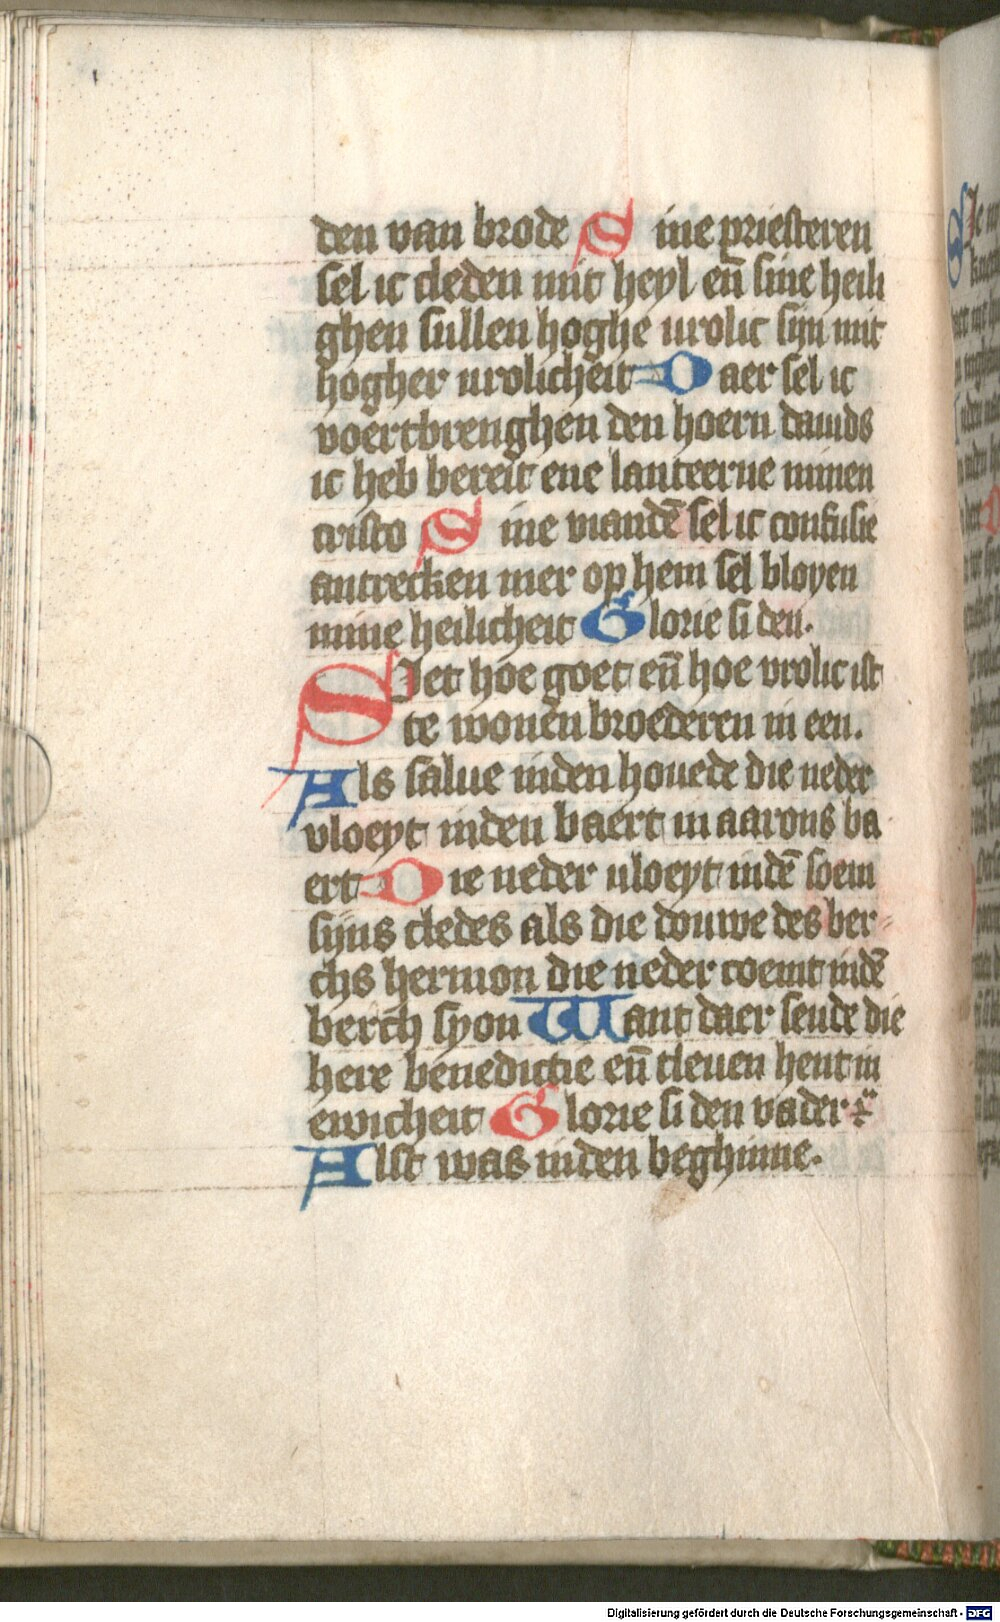 den van brode Sine priesteren
sel ic cleden mit heyl en̄ sine heili
ghen sullen hoghe urolic sijn mit
hogher urolicheit Daer sel ic
voertbrenghen den hoern dauids
ic heb bereit ene lanteerne minen
cristo Sine viandē sel ic confusie
antrecken mer op hem sel bloyen
mine heilicheit Glorie si den.
Siet hoe goet en̄ hoe vrolic ist
te wonen broederen in een.
Als salue inden houede die neder
vloeyt inden baert in aarons ba
ert Die neder uloeyt indē soem
sijns cledes als die douwe des ber
chs hermon die neder coemt indē
berch syon Want daer sende die
here benedictie en̄ tleuen hent in
ewicheit Glorie si den vader
Alst was inden beghinne.
Digitalisierung gefördert durch die Deutsche Forschungsgemeinschaft - DFG